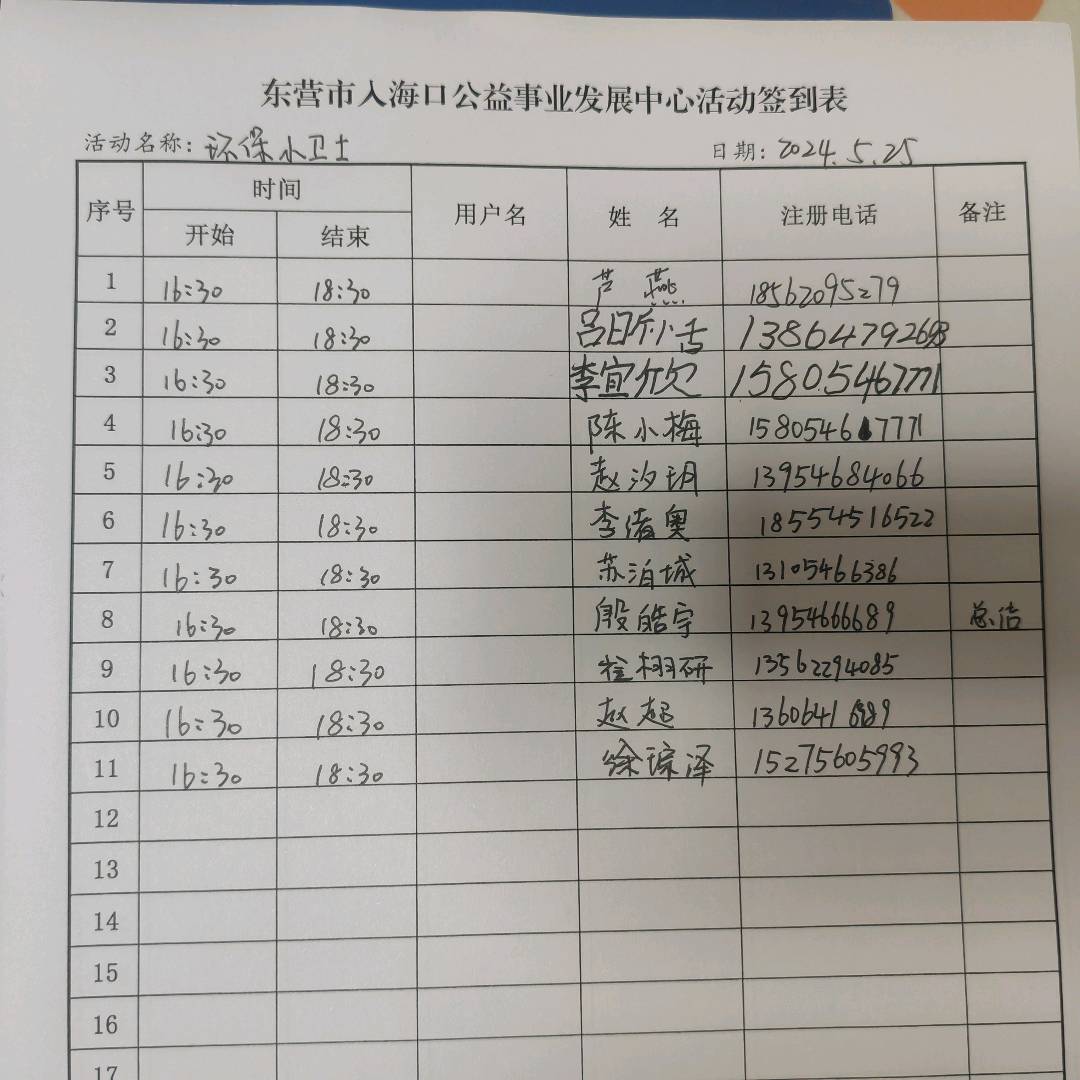 东营市入海口公益事业发展中心活动签到表
活动名称：环保小卫士 日期：2024.5.25
序号 时间 用户名 姓 名 注册电话 备注
开始 结束
1 16:30 18:30 芦 燕 18562095279
2 16:30 18:30 13864792693
3 16:30 18:30 李宜欣 15805467771
4 16:30 18:30 陈小梅 15805467771
5 16:30 18:30 赵汐玥 13954684066
6 16:30 18:30 李渚奥 18554516522
7 16:30 18:30 苏泊城 13105466386
8 16:30 18:30 殷皓宇 13954666689 总结
9 16:30 18:30 栩研 13562294085
10 16:30 18:30 赵起
11 16:30 18:30 徐琮泽 15275605993
12
13
14
15
16
17